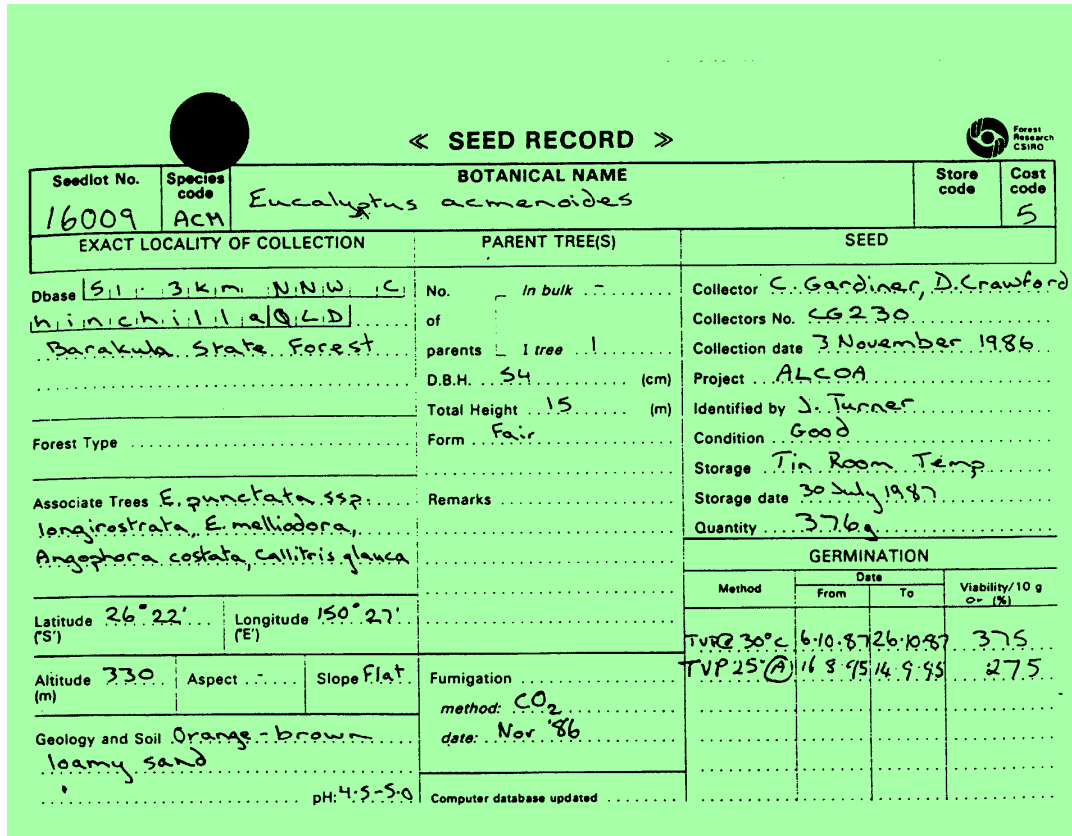 « SEED RECORD »
Forest
Research
CSIRO
Seedlot No.
16009
Species
code
ACM
BOTANICAL NAME
Eucalyptus acmenoides
Store
code
Cost
code
5
EXACT LOCALITY OF COLLECTION
Dbase 51.3km NNW C
hinchilla QLD
Barakula State Forest
Forest Type
Associate Trees E. punctata ssp.
longirostrata, E. melliodora,
Angophora costata, Callitris glauca
Latitude 26°22'
("S')
Longitude 150°27'
("E')
Altitude 330
(m)
Aspect -
Slope Flat
Geology and Soil Orange-brown
loamy sand
pH: 4.5-5.0
PARENT TREE(S)
No. In bulk -
of
parents 1 tree 1
D.B.H. 54 (cm)
Total Height 15 (m)
Form Fair
Remarks
Fumigation
method: CO2
date: Nov '86
Computer database updated
SEED
Collector C. Gardiner, D. Crawford
Collectors No. CG230
Collection date 3 November 1986
Project ALCOA
Identified by J. Turner
Condition Good
Storage Tin Room Temp
Storage date 30 July 1987
Quantity 376g
GERMINATION
Method
Date
From To
Viability/10 g
or (%)
TVP@ 30°C 6.10.87 26.10.87 375
TVP 25° (A) 16 8 95 14.9.95 275